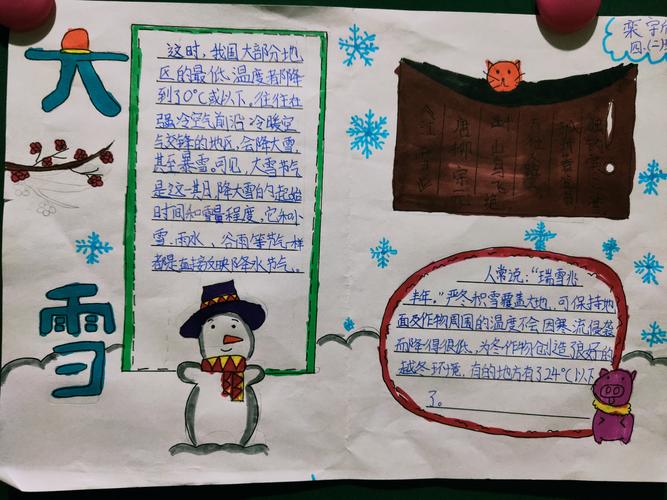 大
雪
这时，我国大部分地
区的最低温度都降
到了0℃或以下。往往在
强冷空气前沿冷暖空
气交锋的地区，会降大雪
甚至暴雪。可见，大雪节气
是这一其月降大雪的起始
时间和雪量程度，它和小
雪、雨水、谷雨等节气一样
都是直接反映降水节气。
栾宇
四.(二)
《江雪》
唐柳宗元
山鸟飞绝
人常说："瑞雪兆
丰年。"严冬积雪覆盖大地，可保持地
面及作物周围的温度不会因寒流侵袭
而降得很低，为冬作物创造了很好的
越冬环境，有的地方有了24℃以下
了。